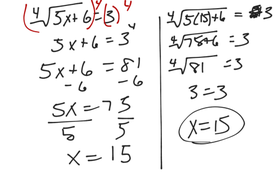 (⁴√5x+6)⁴ = (3)⁴
5x+6 = 3⁴
5x+6 = 81
-6 -6
5x = 75
5 5
x = 15
⁴√5(15)+6 = 3
⁴√75+6 = 3
⁴√81 = 3
3 = 3
x=15